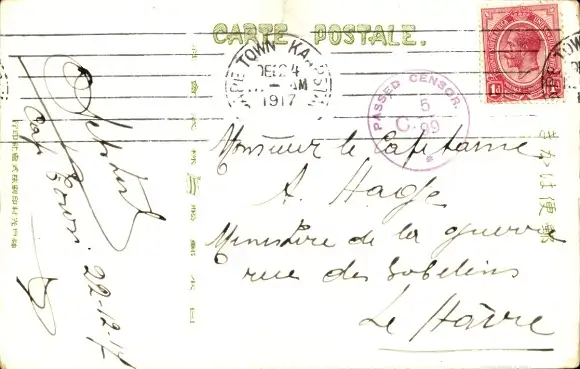 CARTE POSTALE.
CAPE TOWN KAAPSTAD
DEC 24
AM
1917
PASSED CENSOR.
5
C.29
1d 1d
Monsieur le Capitaine
A. Hage
Ministère de la guerre
rue des Gobelins
Le Hâvre
Cape Town
22-12-17
きかは便郵